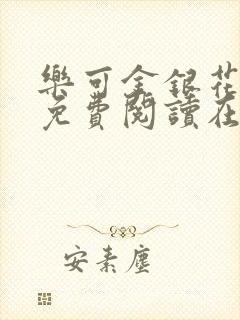 樂可金銀花
免費閱讀在
安素塵